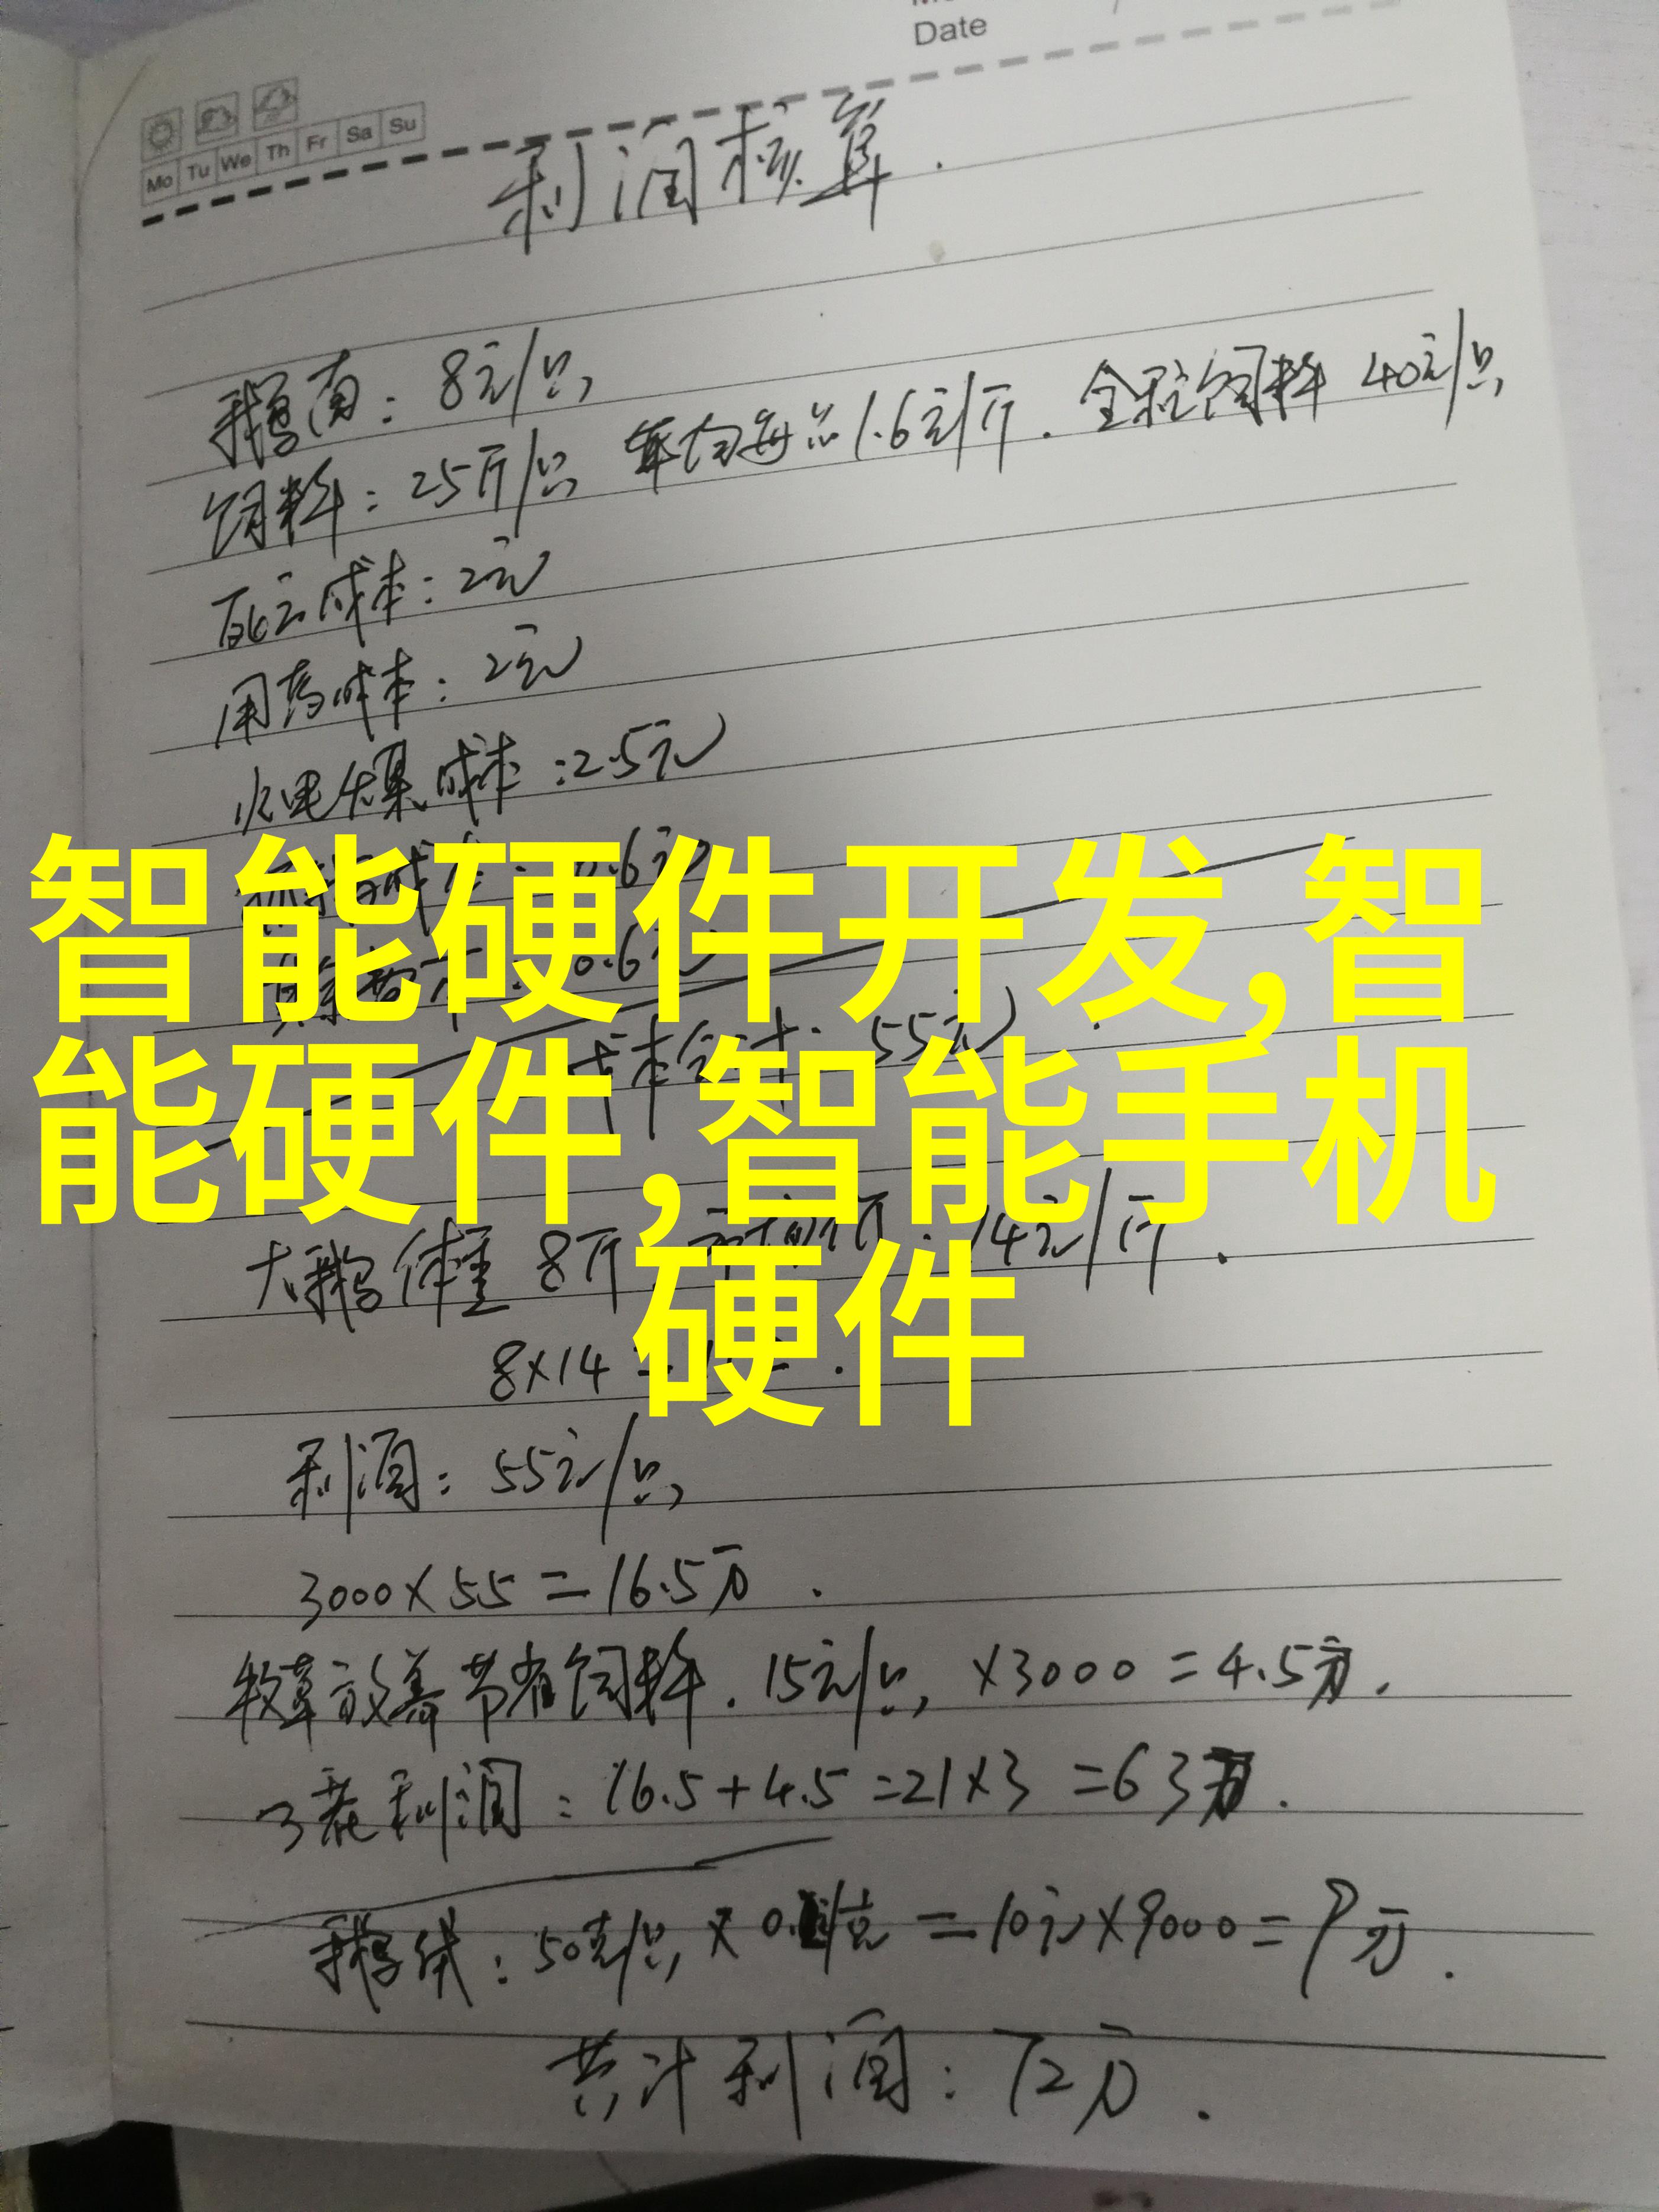 Date
Mo Tu We Th Fr Sa Su
利润核算.
鹅苗: 8元/只,
饲料: 25斤/只, 平均每斤1.6元/斤. 全程饲料 40元/只,
死亡成本: 2元
用药成本: 2元
水电煤成本: 2.5元
0.6元
0.6元
成本合计: 55元
智能硬件开发,智
能硬件,智能手机
硬件
大鹅体重 8斤 14元/斤.
8×14
利润: 55元/只,
3000×55=16.5万.
牧草放养节省饲料. 15元/只, ×3000=4.5万.
3茬利润: 16.5+4.5=21×3=63万.
鹅绒: 50克/只, × =10元×9000=9万.
共计利润: 72万.